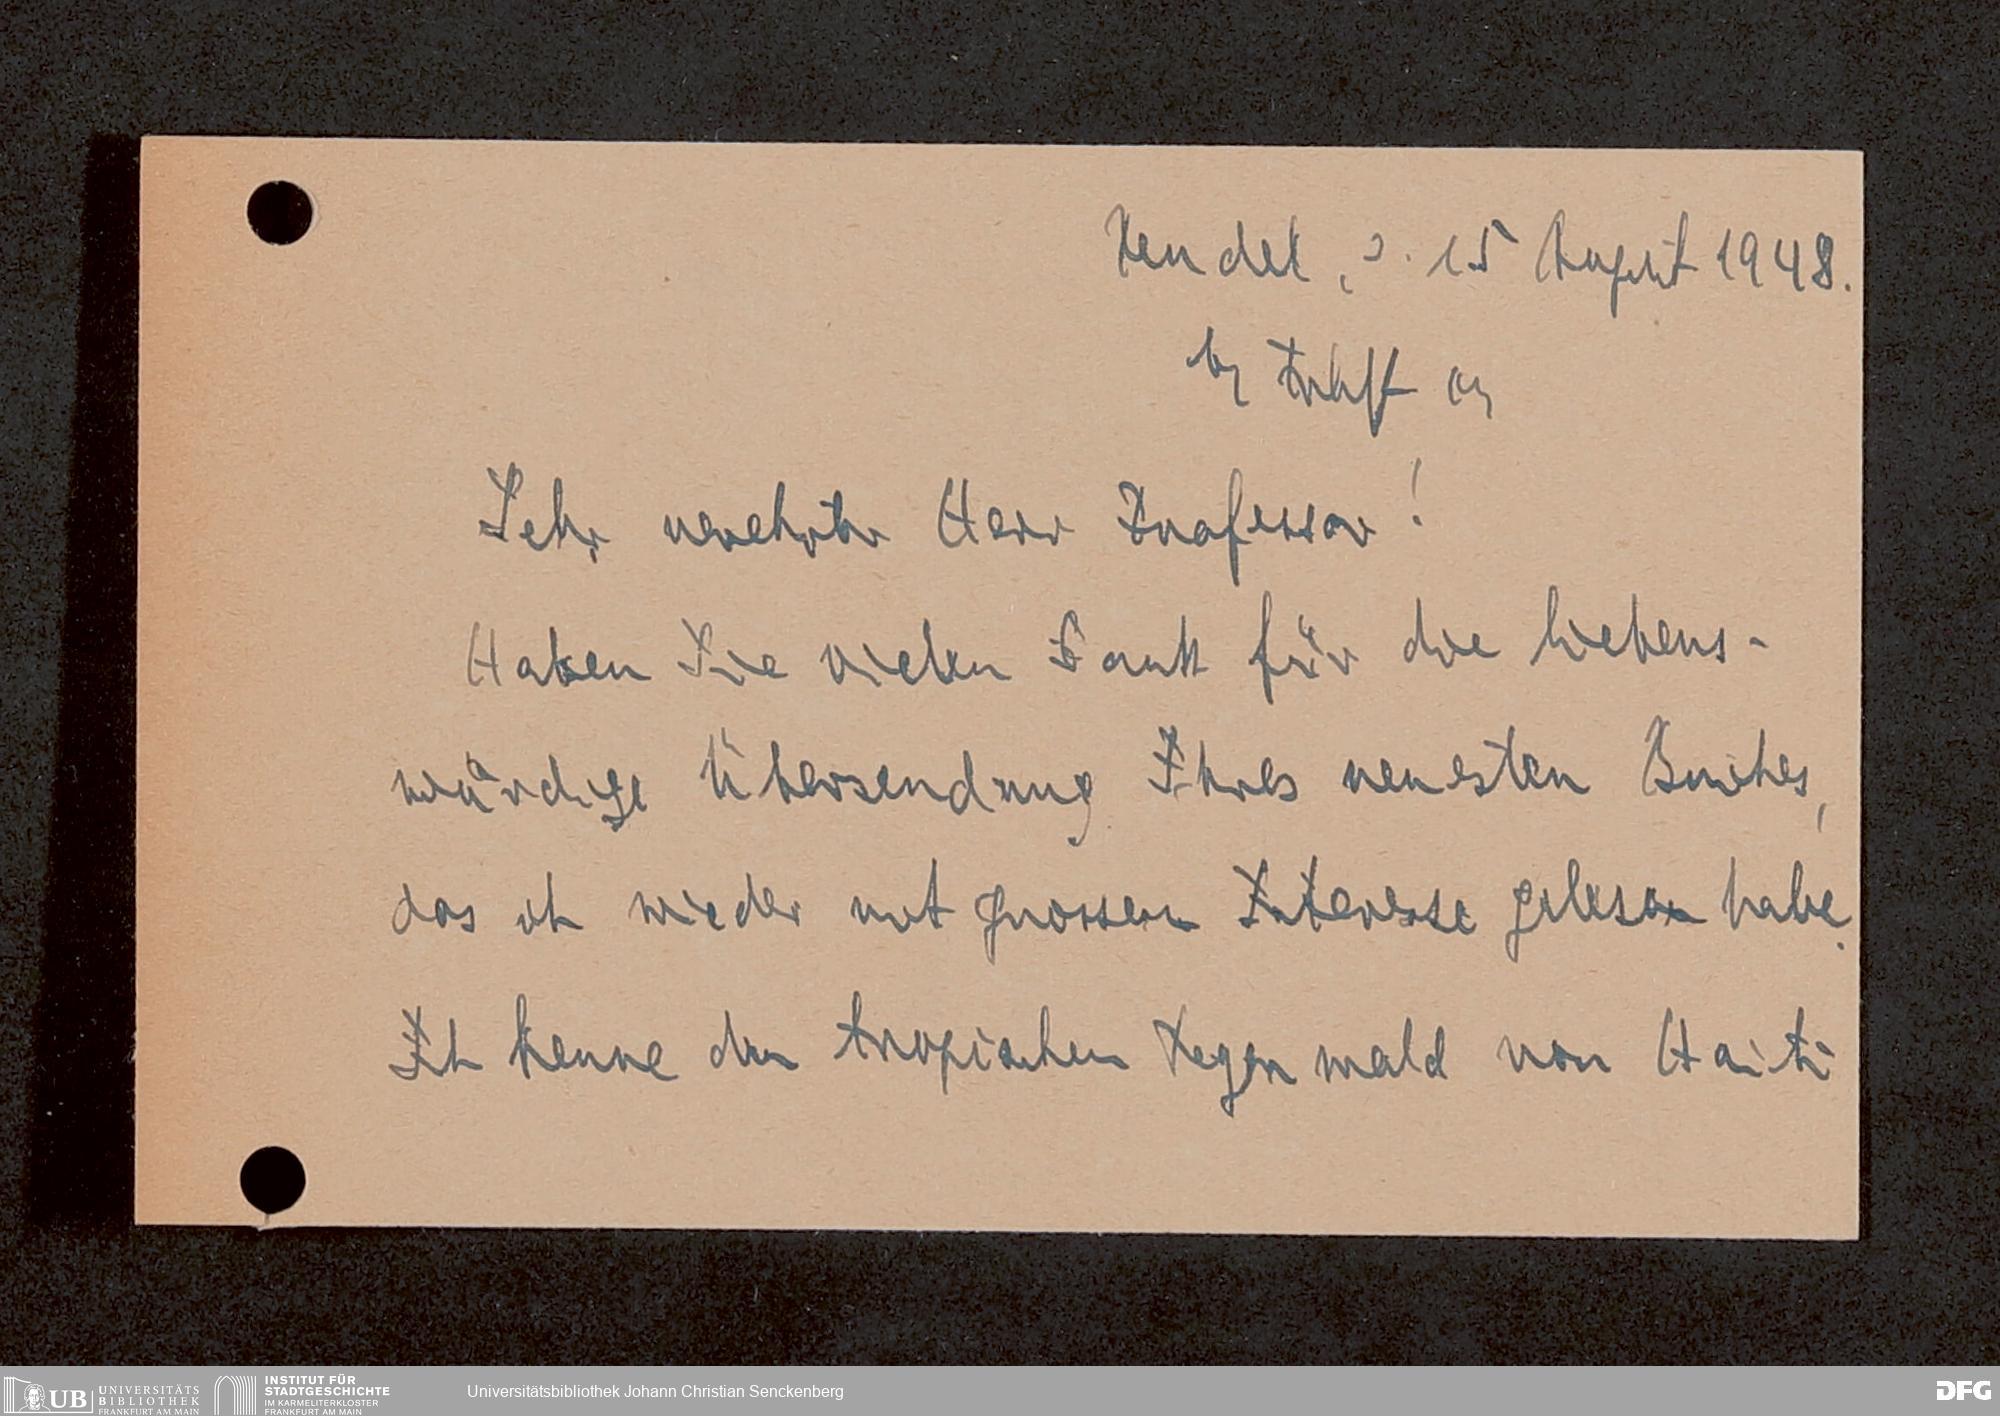 Rendel, d. 15 August 1948.
Sehr verehrter Herr Professor!
Haben Sie vielen Dank für die liebens-
würdige Übersendung Ihres neuesten Buches,
das ich wieder mit grossem Interesse gelesen habe.
Ich kenne den tropischen Regenwald von Haiti
UB UNIVERSITÄTS
BIBLIOTHEK
FRANKFURT AM MAIN
INSTITUT FÜR
STADTGESCHICHTE
IM KARMELITERKLOSTER
FRANKFURT AM MAIN
Universitätsbibliothek Johann Christian Senckenberg
DFG